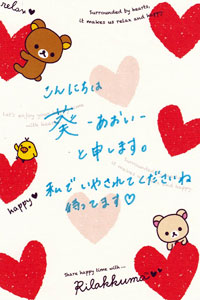 relax
Surrounded by hearts,
it makes us relax and happy
こんにちは
葵 -あおい-
と申します。
私でいやされてくださいね
待ってます♡
happy
Share happy time with...
Rilakkuma